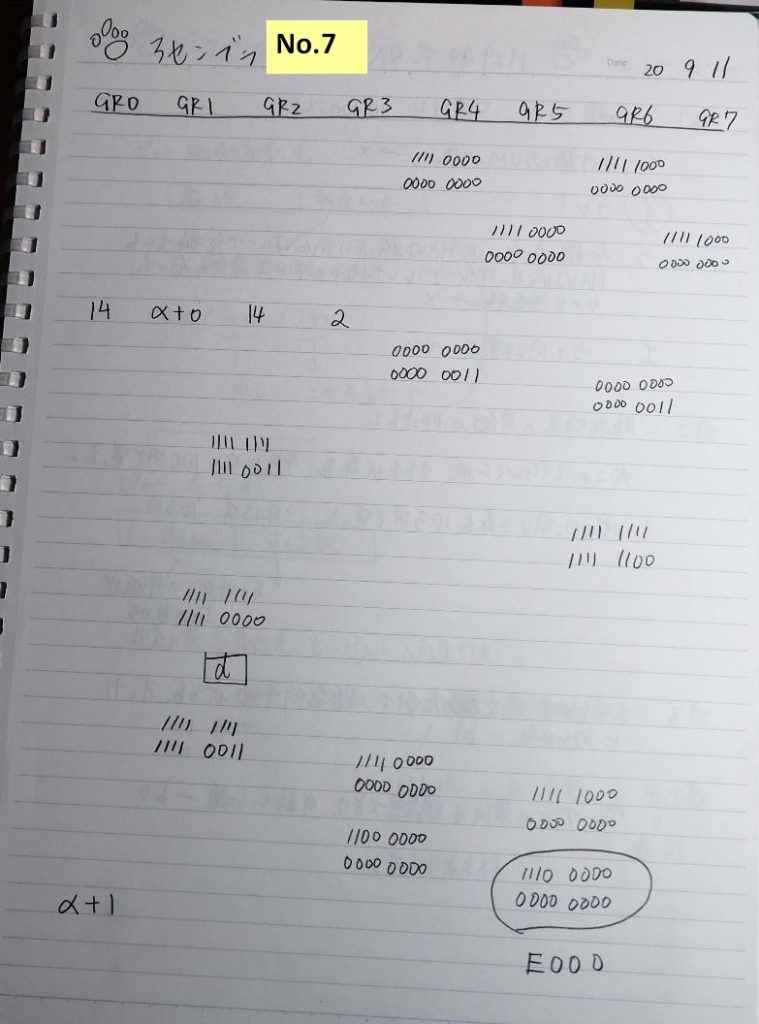 アセンブラ No.7
Date 20 9 11
GR0 GR1 GR2 GR3 GR4 GR5 GR6 GR7
1111 0000 1111 1000
0000 0000 0000 0000
1111 0000 1111 1000
0000 0000 0000 0000
14 α+0 14 2
0000 0000
0000 0011 0000 0000
0000 0011
1111 1111
1111 0011
1111 1111
1111 1100
1111 1111
1111 0000
d
1111 1111
1111 0011 1111 0000
0000 0000 1111 1000
0000 0000
1100 0000
0000 0000 1110 0000
α+1 0000 0000
E000